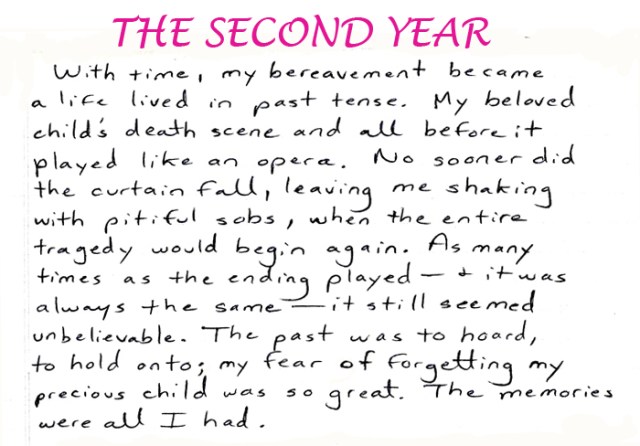 THE SECOND YEAR
With time, my bereavement became
a life lived in past tense. My beloved
child's death scene and all before it
played like an opera. No sooner did
the curtain fall, leaving me shaking
with pitiful sobs, when the entire
tragedy would begin again. As many
times as the ending played — & it was
always the same — it still seemed
unbelievable. The past was to hoard,
to hold onto; my fear of forgetting my
precious child was so great. The memories
were all I had.